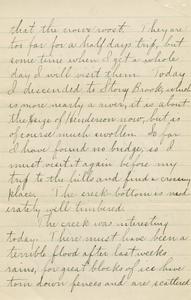 that the river west. They are
too far for a half days trip, but
some time when I get a whole
day I will visit them. Today
I descended to Stony Brook, which
is more nearly a river, it is about
the size of Henderson now, but as
of course much swollen. So far
I have found no bridge, so I
must visit it again before my
trip to the hills and find a crossing
place. The creek bottom is mod
erately well timbered.
The creek was interesting
today. There must have been a
terrible flood after last weeks
rains, for great blocks of ice have
torn down fences and are scattered